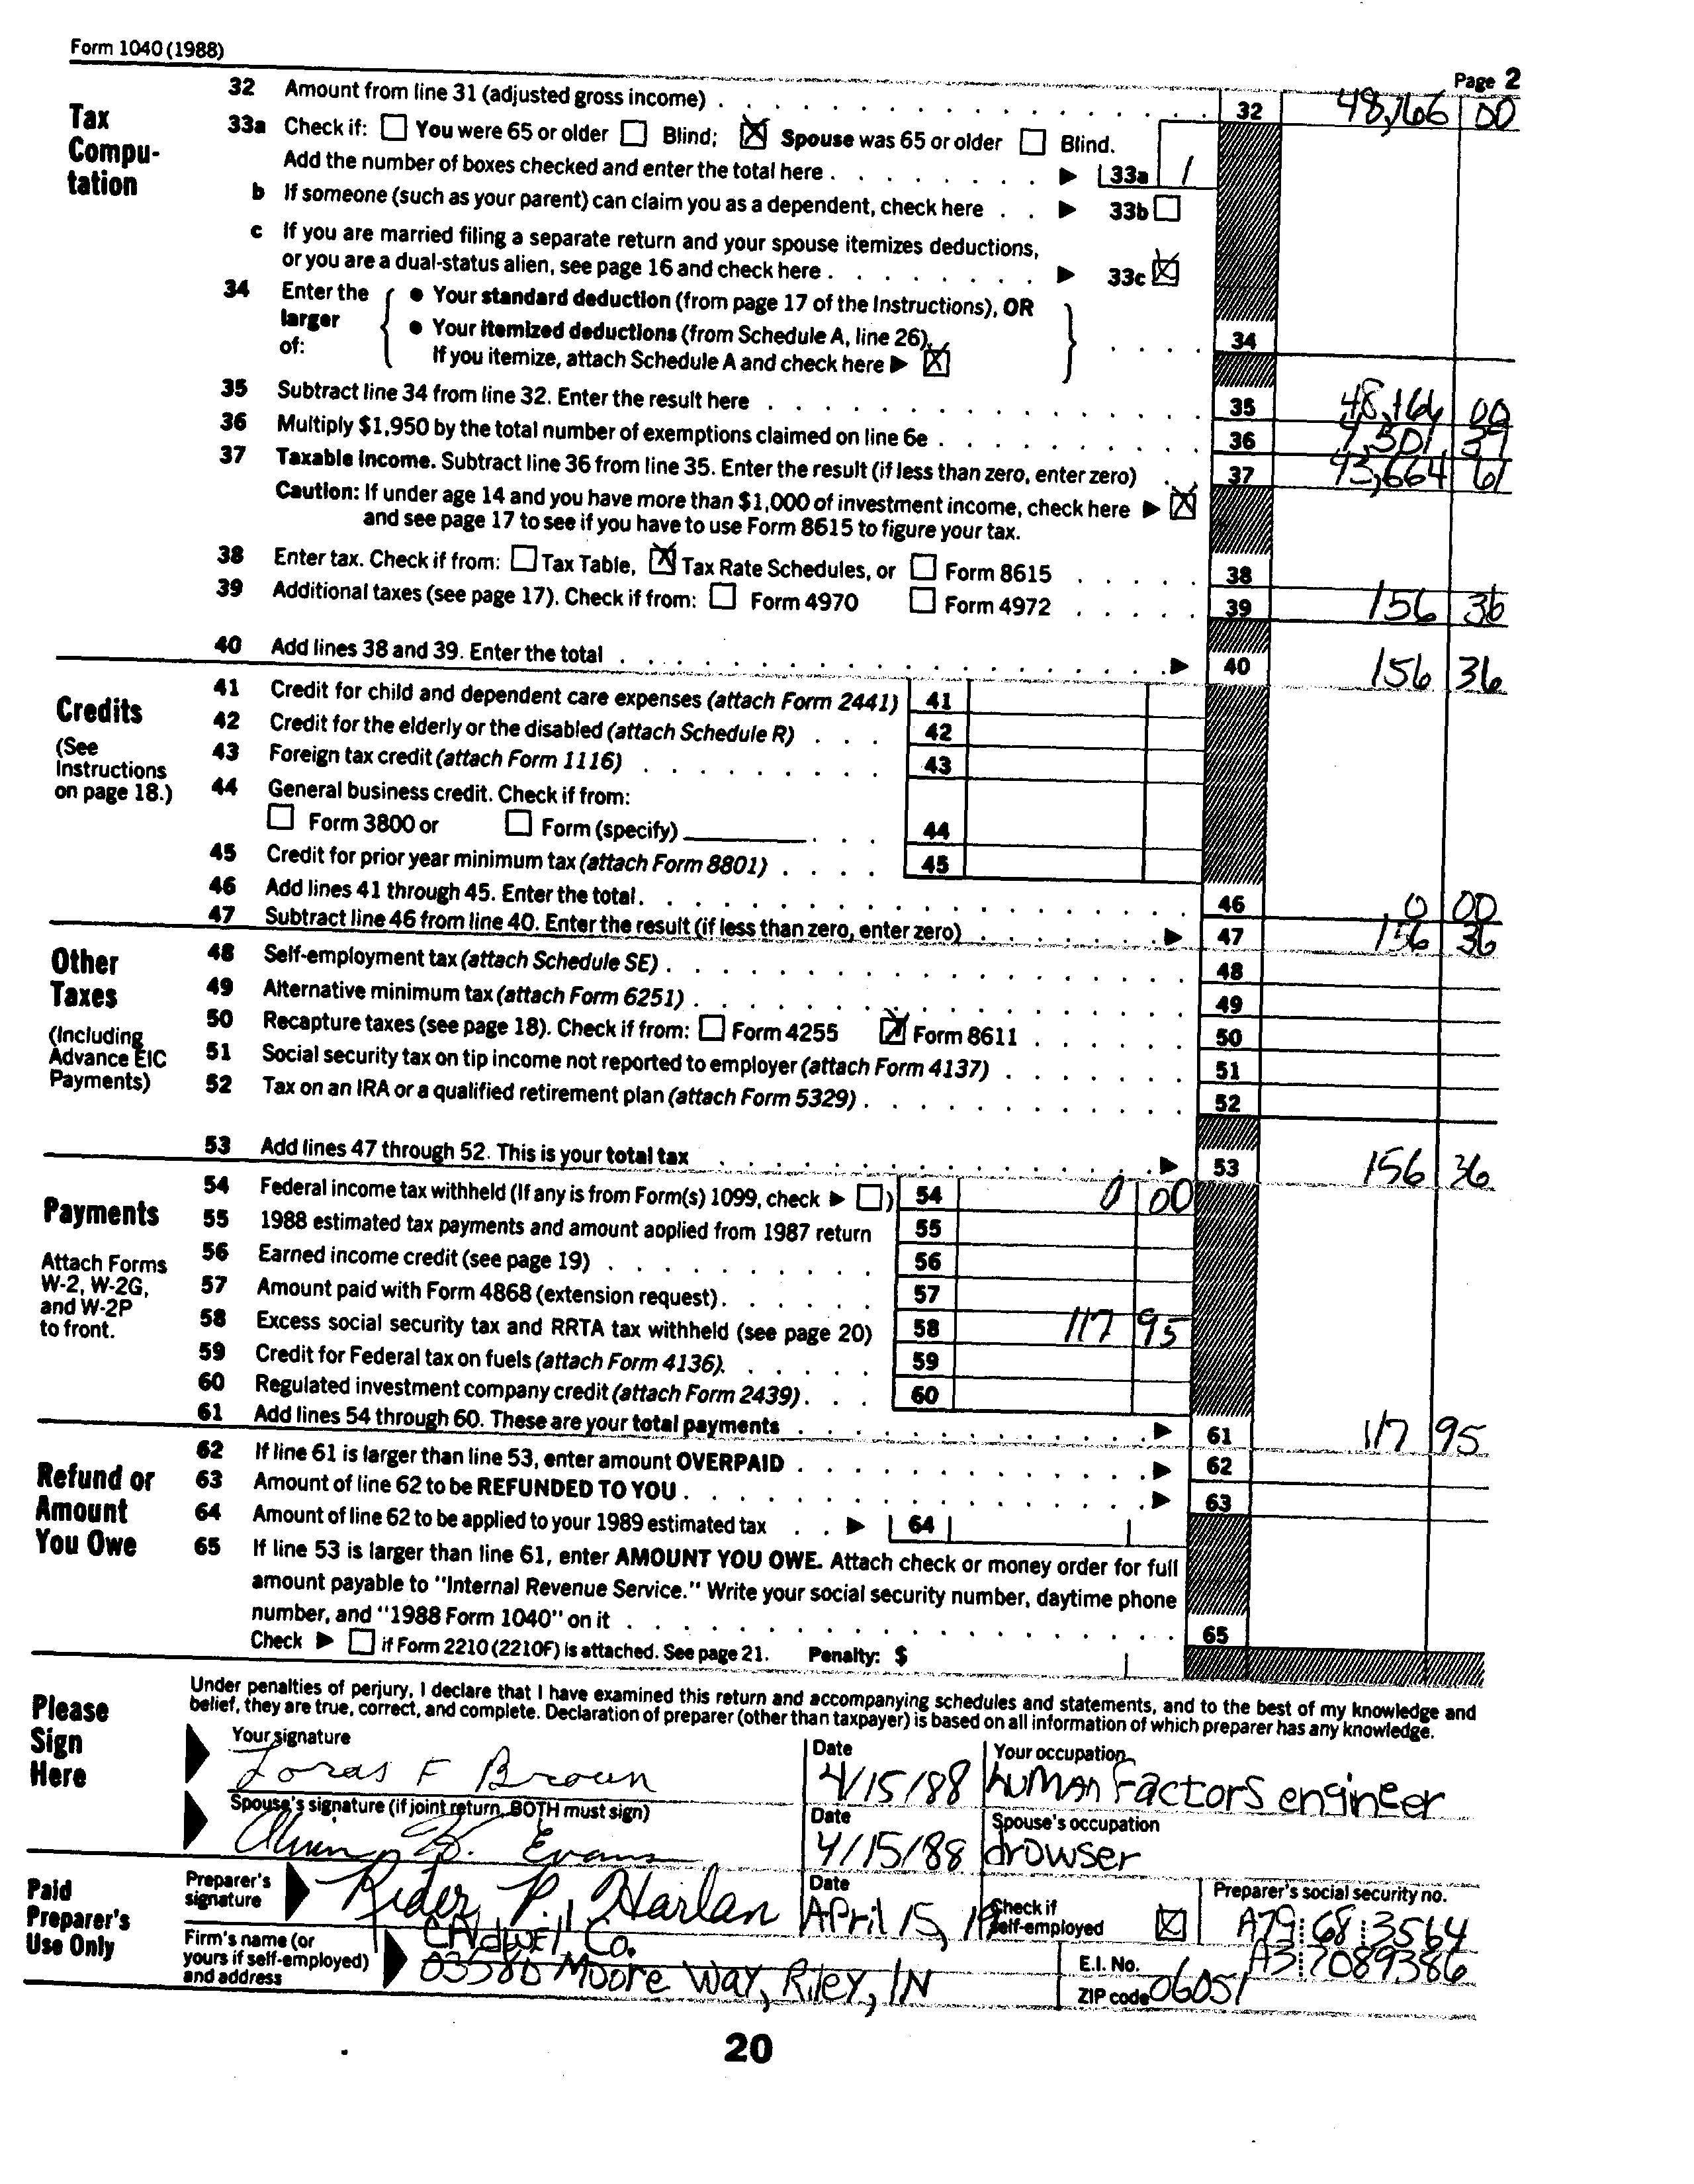 Form 1040 (1988)
Page 2
Tax Compu-
tation
32 Amount from line 31 (adjusted gross income) 32 48,166 00
33a Check if: You were 65 or older Blind; X Spouse was 65 or older Blind.
Add the number of boxes checked and enter the total here 33a 1
b If someone (such as your parent) can claim you as a dependent, check here 33b
c If you are married filing a separate return and your spouse itemizes deductions,
or you are a dual-status alien, see page 16 and check here 33c X
34 Enter the larger of:
• Your standard deduction (from page 17 of the Instructions), OR
• Your itemized deductions (from Schedule A, line 26). 34
If you itemize, attach Schedule A and check here X
35 Subtract line 34 from line 32. Enter the result here 35 48,166 00
36 Multiply $1,950 by the total number of exemptions claimed on line 6e 36 4,501 39
37 Taxable income. Subtract line 36 from line 35. Enter the result (if less than zero, enter zero) 37 43,664 61
Caution: If under age 14 and you have more than $1,000 of investment income, check here X
and see page 17 to see if you have to use Form 8615 to figure your tax.
38 Enter tax. Check if from: Tax Table, X Tax Rate Schedules, or Form 8615 38
39 Additional taxes (see page 17). Check if from: Form 4970 Form 4972 39 156 36
40 Add lines 38 and 39. Enter the total 40 156 36
Credits
(See
Instructions
on page 18.)
41 Credit for child and dependent care expenses (attach Form 2441) 41
42 Credit for the elderly or the disabled (attach Schedule R) 42
43 Foreign tax credit (attach Form 1116) 43
44 General business credit. Check if from:
Form 3800 or Form (specify) 44
45 Credit for prior year minimum tax (attach Form 8801) 45
46 Add lines 41 through 45. Enter the total. 46 0 00
47 Subtract line 46 from line 40. Enter the result (if less than zero, enter zero) 47 156 36
Other
Taxes
(Including
Advance EIC
Payments)
48 Self-employment tax (attach Schedule SE) 48
49 Alternative minimum tax (attach Form 6251) 49
50 Recapture taxes (see page 18). Check if from: Form 4255 X Form 8611 50
51 Social security tax on tip income not reported to employer (attach Form 4137) 51
52 Tax on an IRA or a qualified retirement plan (attach Form 5329) 52
53 Add lines 47 through 52. This is your total tax 53 156 36
Payments
Attach Forms
W-2, W-2G,
and W-2P
to front.
54 Federal income tax withheld (If any is from Form(s) 1099, check ) 54 0 00
55 1988 estimated tax payments and amount applied from 1987 return 55
56 Earned income credit (see page 19) 56
57 Amount paid with Form 4868 (extension request) 57
58 Excess social security tax and RRTA tax withheld (see page 20) 58 117 95
59 Credit for Federal tax on fuels (attach Form 4136). 59
60 Regulated investment company credit (attach Form 2439) 60
61 Add lines 54 through 60. These are your total payments 61 117 95
Refund or
Amount
You Owe
62 If line 61 is larger than line 53, enter amount OVERPAID 62
63 Amount of line 62 to be REFUNDED TO YOU 63
64 Amount of line 62 to be applied to your 1989 estimated tax 64
65 If line 53 is larger than line 61, enter AMOUNT YOU OWE. Attach check or money order for full
amount payable to "Internal Revenue Service." Write your social security number, daytime phone
number, and "1988 Form 1040" on it 65
Check if Form 2210 (2210F) is attached. See page 21. Penalty: $
Please
Sign
Here
Under penalties of perjury, I declare that I have examined this return and accompanying schedules and statements, and to the best of my knowledge and
belief, they are true, correct, and complete. Declaration of preparer (other than taxpayer) is based on all information of which preparer has any knowledge.
Your signature Date Your occupation
Loras F Brown 4/15/88 human factors engineer
Spouse's signature (if joint return, BOTH must sign) Date Spouse's occupation
K. Evans 4/15/88 drowser
Paid
Preparer's
Use Only
Preparer's signature Rider P. Harlan Date April 15, 19 Check if self-employed X Preparer's social security no. A79 68 3564
Firm's name (or yours if self-employed) and address Caldwell Co. E.I. No. A3 7089386
03580 Moore Way, Riley, IN ZIP code 06051
20